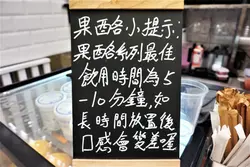 果西咯小提示:
果西咯系列最佳
飲用時間為5
-10分鐘,如
長時間放置後
口感會變差喔